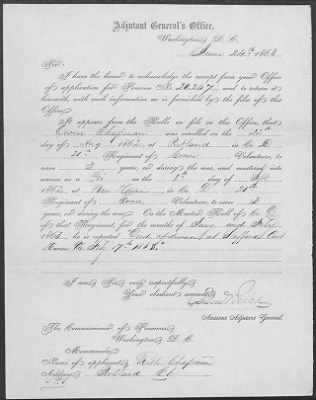 Adjutant General's Office,
Washington, D. C.
June 24th 1863
Sir:
I have the honor to acknowledge the receipt from your Office
of application for Pension No. 24247, and to return it
herewith, with such information as is furnished by the files of this
Office.
It appears from the Rolls on file in this Office, that
Edwin Chapman was enrolled on the 22d
day of Aug, 1862, at Portland in Co. D
20th Regiment of Conn Volunteers, to
serve 3 years, or during the war, and mustered into
service as a on the 8th day of Sept
1862, at New Haven in Co. D 20th
Regiment of Conn Volunteers, to serve 3
years, or during the war. On the Muster Roll of Co. D
of that Regiment for the months of Jany and Feby
1863, he is reported "Died of disease at Stafford Court
House Va. Feby 17th 1863."
I am Sir, very respectfully,
Your obedient servant,
Assistant Adjutant General.
The Commissioner of Pensions
Washington D. C.
Memoranda
Name of applicant, Ruth Chapman
Address, Portland Ct.